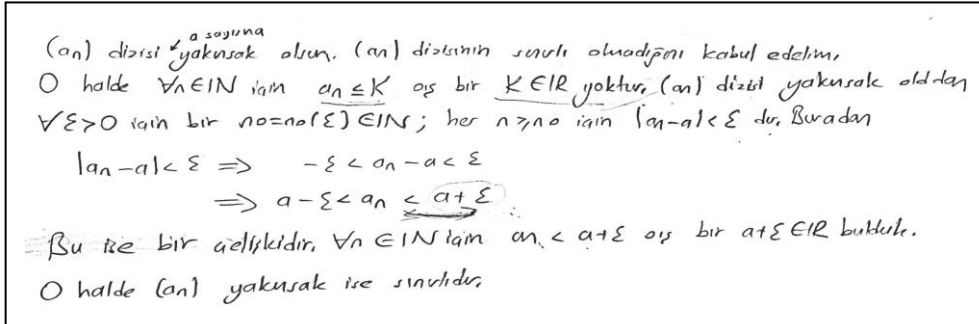 a sayısına
(an) dizisi yakınsak olsun. (an) dizisinin sınırlı olmadığını kabul edelim.
O halde ∀n∈IN için an ≤ K oş bir K∈IR yoktur. (an) dizisi yakınsak old.dan
∀ε>0 için bir n0=n0(ε)∈IN; her n≥n0 için |an-a|<ε dır. Buradan
|an-a|<ε ⇒ -ε < an-a < ε
⇒ a-ε < an < a+ε
Bu ise bir çelişkidir. ∀n∈IN için an < a+ε oş bir a+ε∈IR bulduk.
O halde (an) yakınsak ise sınırlıdır.